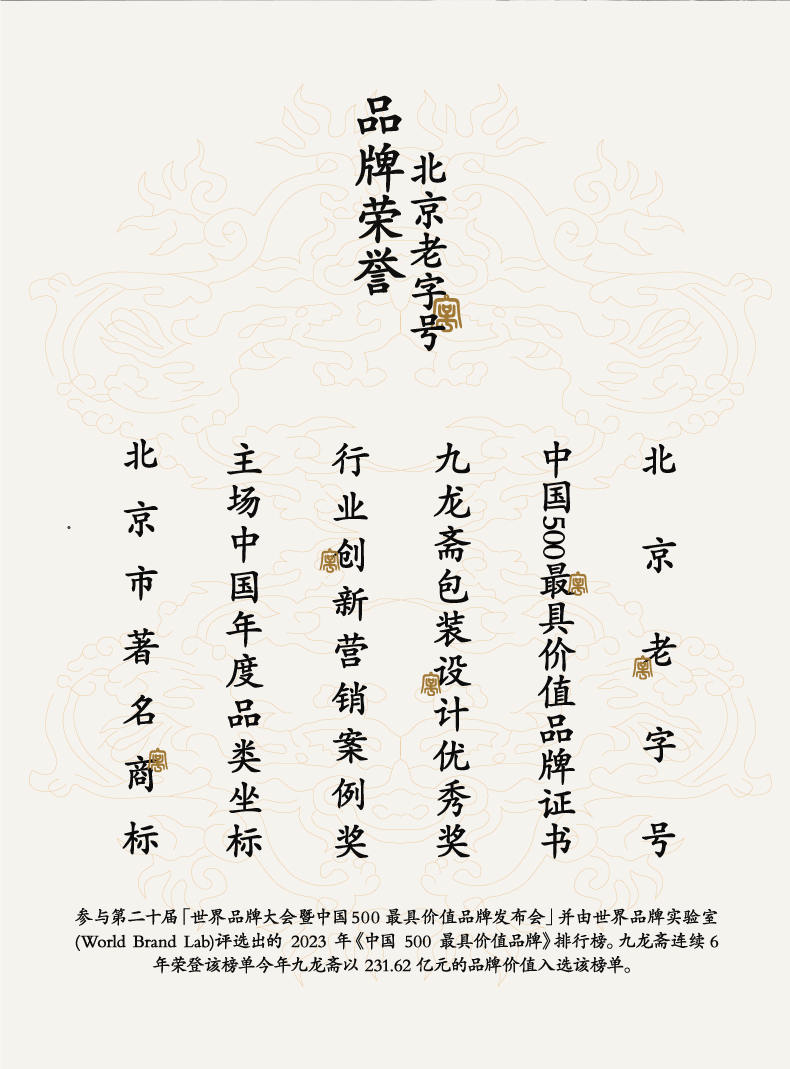 品牌荣誉
北京老字号
北京老字号
中国500最具价值品牌证书
九龙斋包装设计优秀奖
行业创新营销案例奖
主场中国年度品类坐标
北京市著名商标
参与第二十届「世界品牌大会暨中国500最具价值品牌发布会」并由世界品牌实验室
(World Brand Lab)评选出的 2023 年《中国 500 最具价值品牌》排行榜。九龙斋连续 6
年荣登该榜单今年九龙斋以 231.62 亿元的品牌价值入选该榜单。